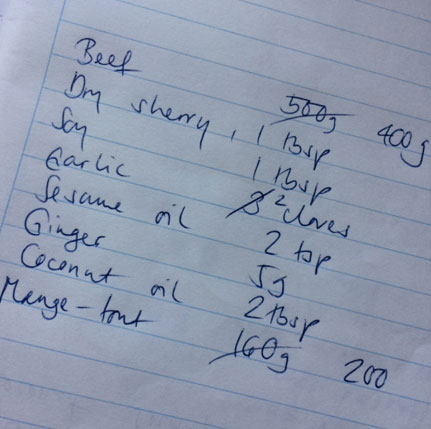 Beef 500g 400g
Dry sherry, 1 tbsp
Soy 1 tbsp
Garlic 3 2 cloves
Sesame oil 2 tsp
Ginger 5g
Coconut oil 2 tbsp
Mange-tout 160g 200